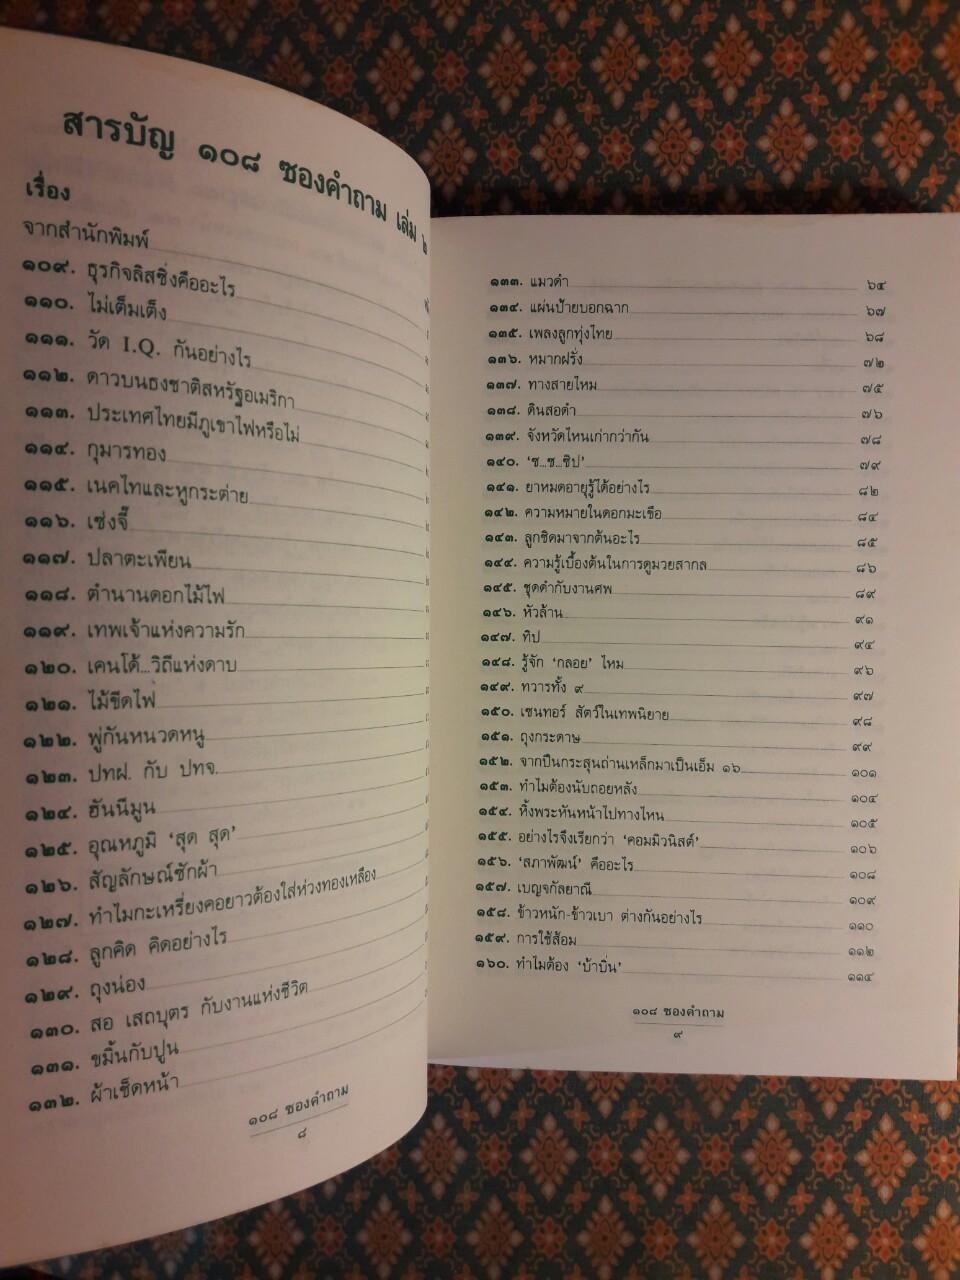 สารบัญ ๑๐๘ ซองคำถาม เล่ม ๒
เรื่อง
จากสำนักพิมพ์
๑๐๙. ธุรกิจลิสซิ่งคืออะไร
๑๑๐. ไม่เต็มเต็ง
๑๑๑. วัด I.Q. กันอย่างไร
๑๑๒. ดาวบนธงชาติสหรัฐอเมริกา
๑๑๓. ประเทศไทยมีภูเขาไฟหรือไม่
๑๑๔. กุมารทอง
๑๑๕. เนคไทและหูกระต่าย
๑๑๖. เซ่งจี๊
๑๑๗. ปลาตะเพียน
๑๑๘. ตำนานดอกไม้ไฟ
๑๑๙. เทพเจ้าแห่งความรัก
๑๒๐. เคนโด้...วิถีแห่งดาบ
๑๒๑. ไม้ขีดไฟ
๑๒๒. พู่กันหนวดหนู
๑๒๓. ปทฝ. กับ ปทจ.
๑๒๔. ฮันนีมูน
๑๒๕. อุณหภูมิ ‘สุด สุด’
๑๒๖. สัญลักษณ์ซักผ้า
๑๒๗. ทำไมกะเหรี่ยงคอยาวต้องใส่ห่วงทองเหลือง
๑๒๘. ลูกคิด คิดอย่างไร
๑๒๙. ถุงน่อง
๑๓๐. สอ เสถบุตร กับงานแห่งชีวิต
๑๓๑. ขมิ้นกับปูน
๑๓๒. ผ้าเช็ดหน้า
๑๐๘ ซองคำถาม
๘
๑๓๓. แมวดำ ๖๕
๑๓๔. แผ่นป้ายบอกฉาก ๖๗
๑๓๕. เพลงลูกทุ่งไทย ๖๘
๑๓๖. หมากฝรั่ง ๗๒
๑๓๗. ทางสายไหม ๗๕
๑๓๘. ดินสอดำ ๗๖
๑๓๙. จังหวัดไหนเก่ากว่ากัน ๗๘
๑๔๐. ‘ซ...ซ...ซิป’ ๗๙
๑๔๑. ยาหมดอายุรู้ได้อย่างไร ๘๒
๑๔๒. ความหมายในดอกมะเขือ ๘๔
๑๔๓. ลูกชิดมาจากต้นอะไร ๘๕
๑๔๔. ความรู้เบื้องต้นในการดูมวยสากล ๘๖
๑๔๕. ชุดดำกับงานศพ ๘๙
๑๔๖. หัวล้าน ๙๑
๑๔๗. ทิป ๙๔
๑๔๘. รู้จัก ‘กลอย’ ไหม ๙๖
๑๔๙. ทวารทั้ง ๙ ๙๗
๑๕๐. เซนทอร์ สัตว์ในเทพนิยาย ๙๘
๑๕๑. ถุงกระดาษ ๙๙
๑๕๒. จากปืนกระสุนถ่านเหล็กมาเป็นเอ็ม ๑๖ ๑๐๑
๑๕๓. ทำไมต้องนับถอยหลัง ๑๐๔
๑๕๔. หิ้งพระหันหน้าไปทางไหน ๑๐๕
๑๕๕. อย่างไรจึงเรียกว่า ‘คอมมิวนิสต์’ ๑๐๖
๑๕๖. ‘สภาพัฒน์’ คืออะไร ๑๐๘
๑๕๗. เบญจกัลยาณี ๑๐๙
๑๕๘. ข้าวหนัก-ข้าวเบา ต่างกันอย่างไร ๑๑๐
๑๕๙. การใช้ส้อม ๑๑๒
๑๖๐. ทำไมต้อง ‘บ้าบิ่น’ ๑๑๔
๑๐๘ ซองคำถาม
๙